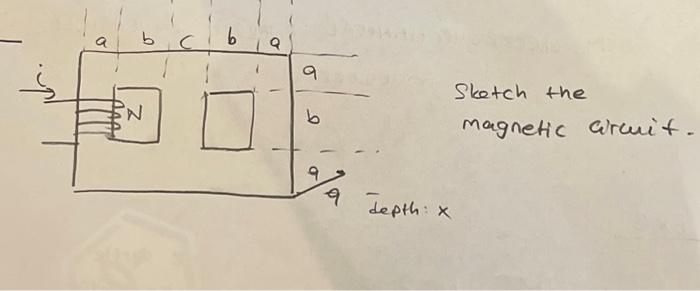 a b c b a
i
a
N
b
a
a
depth: x
Sketch the
magnetic circuit.